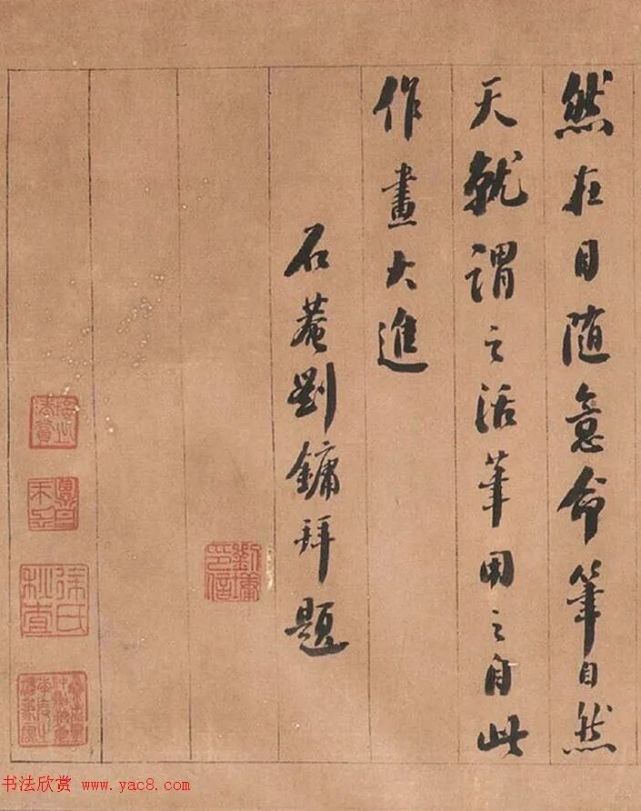 然在目随意命筆自然
天就謂之活筆用之自此
作畫大進
石菴劉鏞拜題
劉墉印信
徐氏
书法欣赏 www.yac8.com